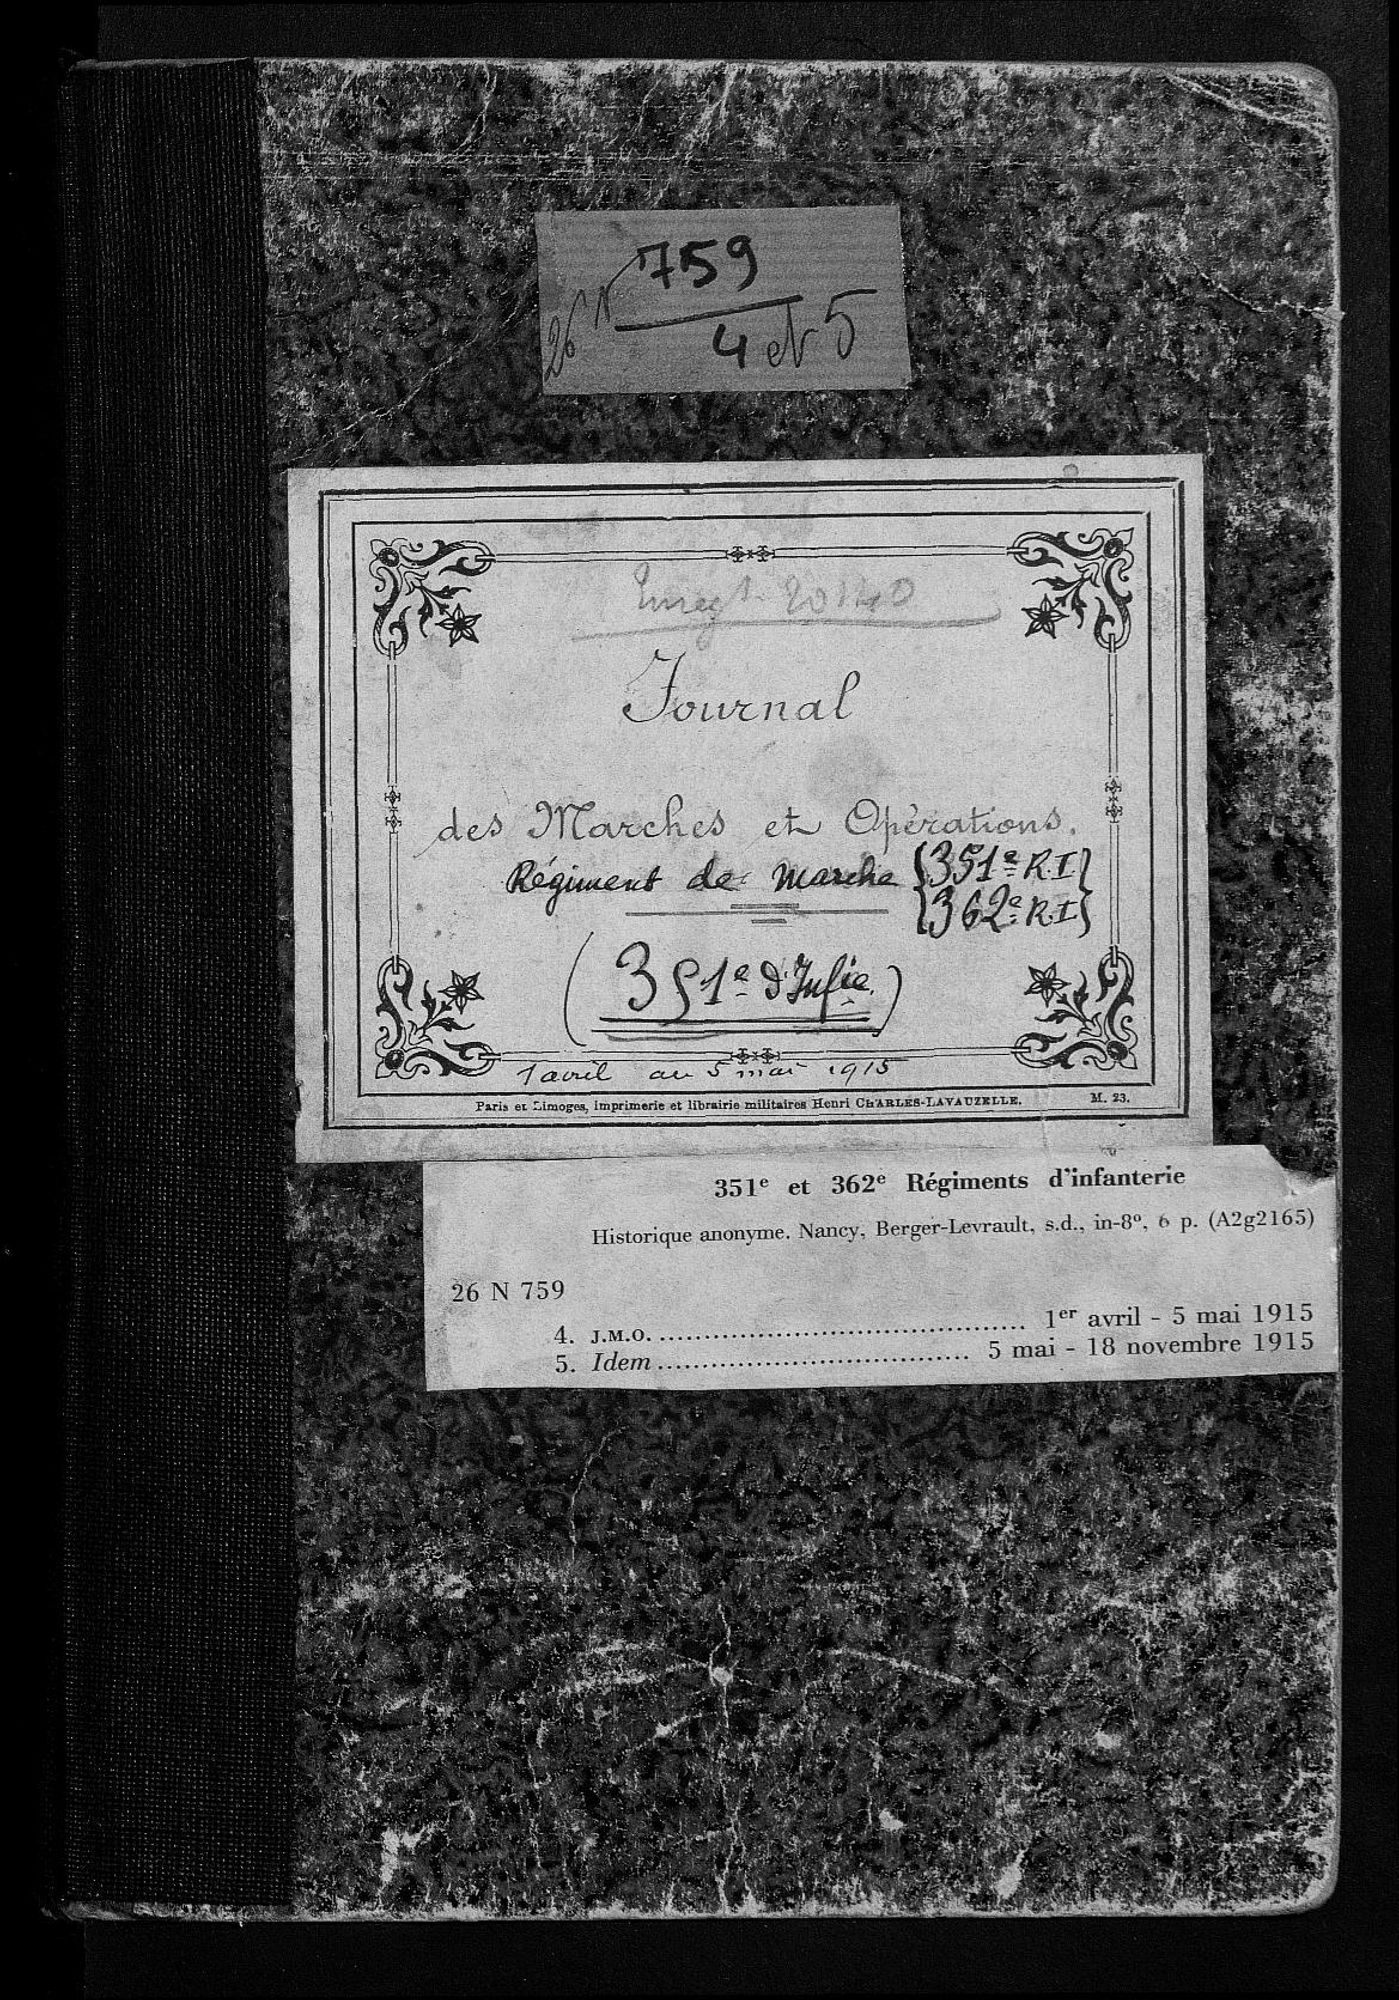 26 N 759
4 et 5
Journal
des Marches et Opérations.
Régiment de marche {351e R.I}
{362e R.I}
(351e d'Infie.)
1 avril au 5 mai 1915
Paris et Limoges, imprimerie et librairie militaires Henri CHARLES-LAVAUZELLE. M. 23.
351e et 362e Régiments d'infanterie
Historique anonyme. Nancy, Berger-Levrault, s.d., in-8º, 6 p. (A2g2165)
26 N 759
4. J.M.O. ........................................ 1er avril - 5 mai 1915
5. Idem .................................... 5 mai - 18 novembre 1915